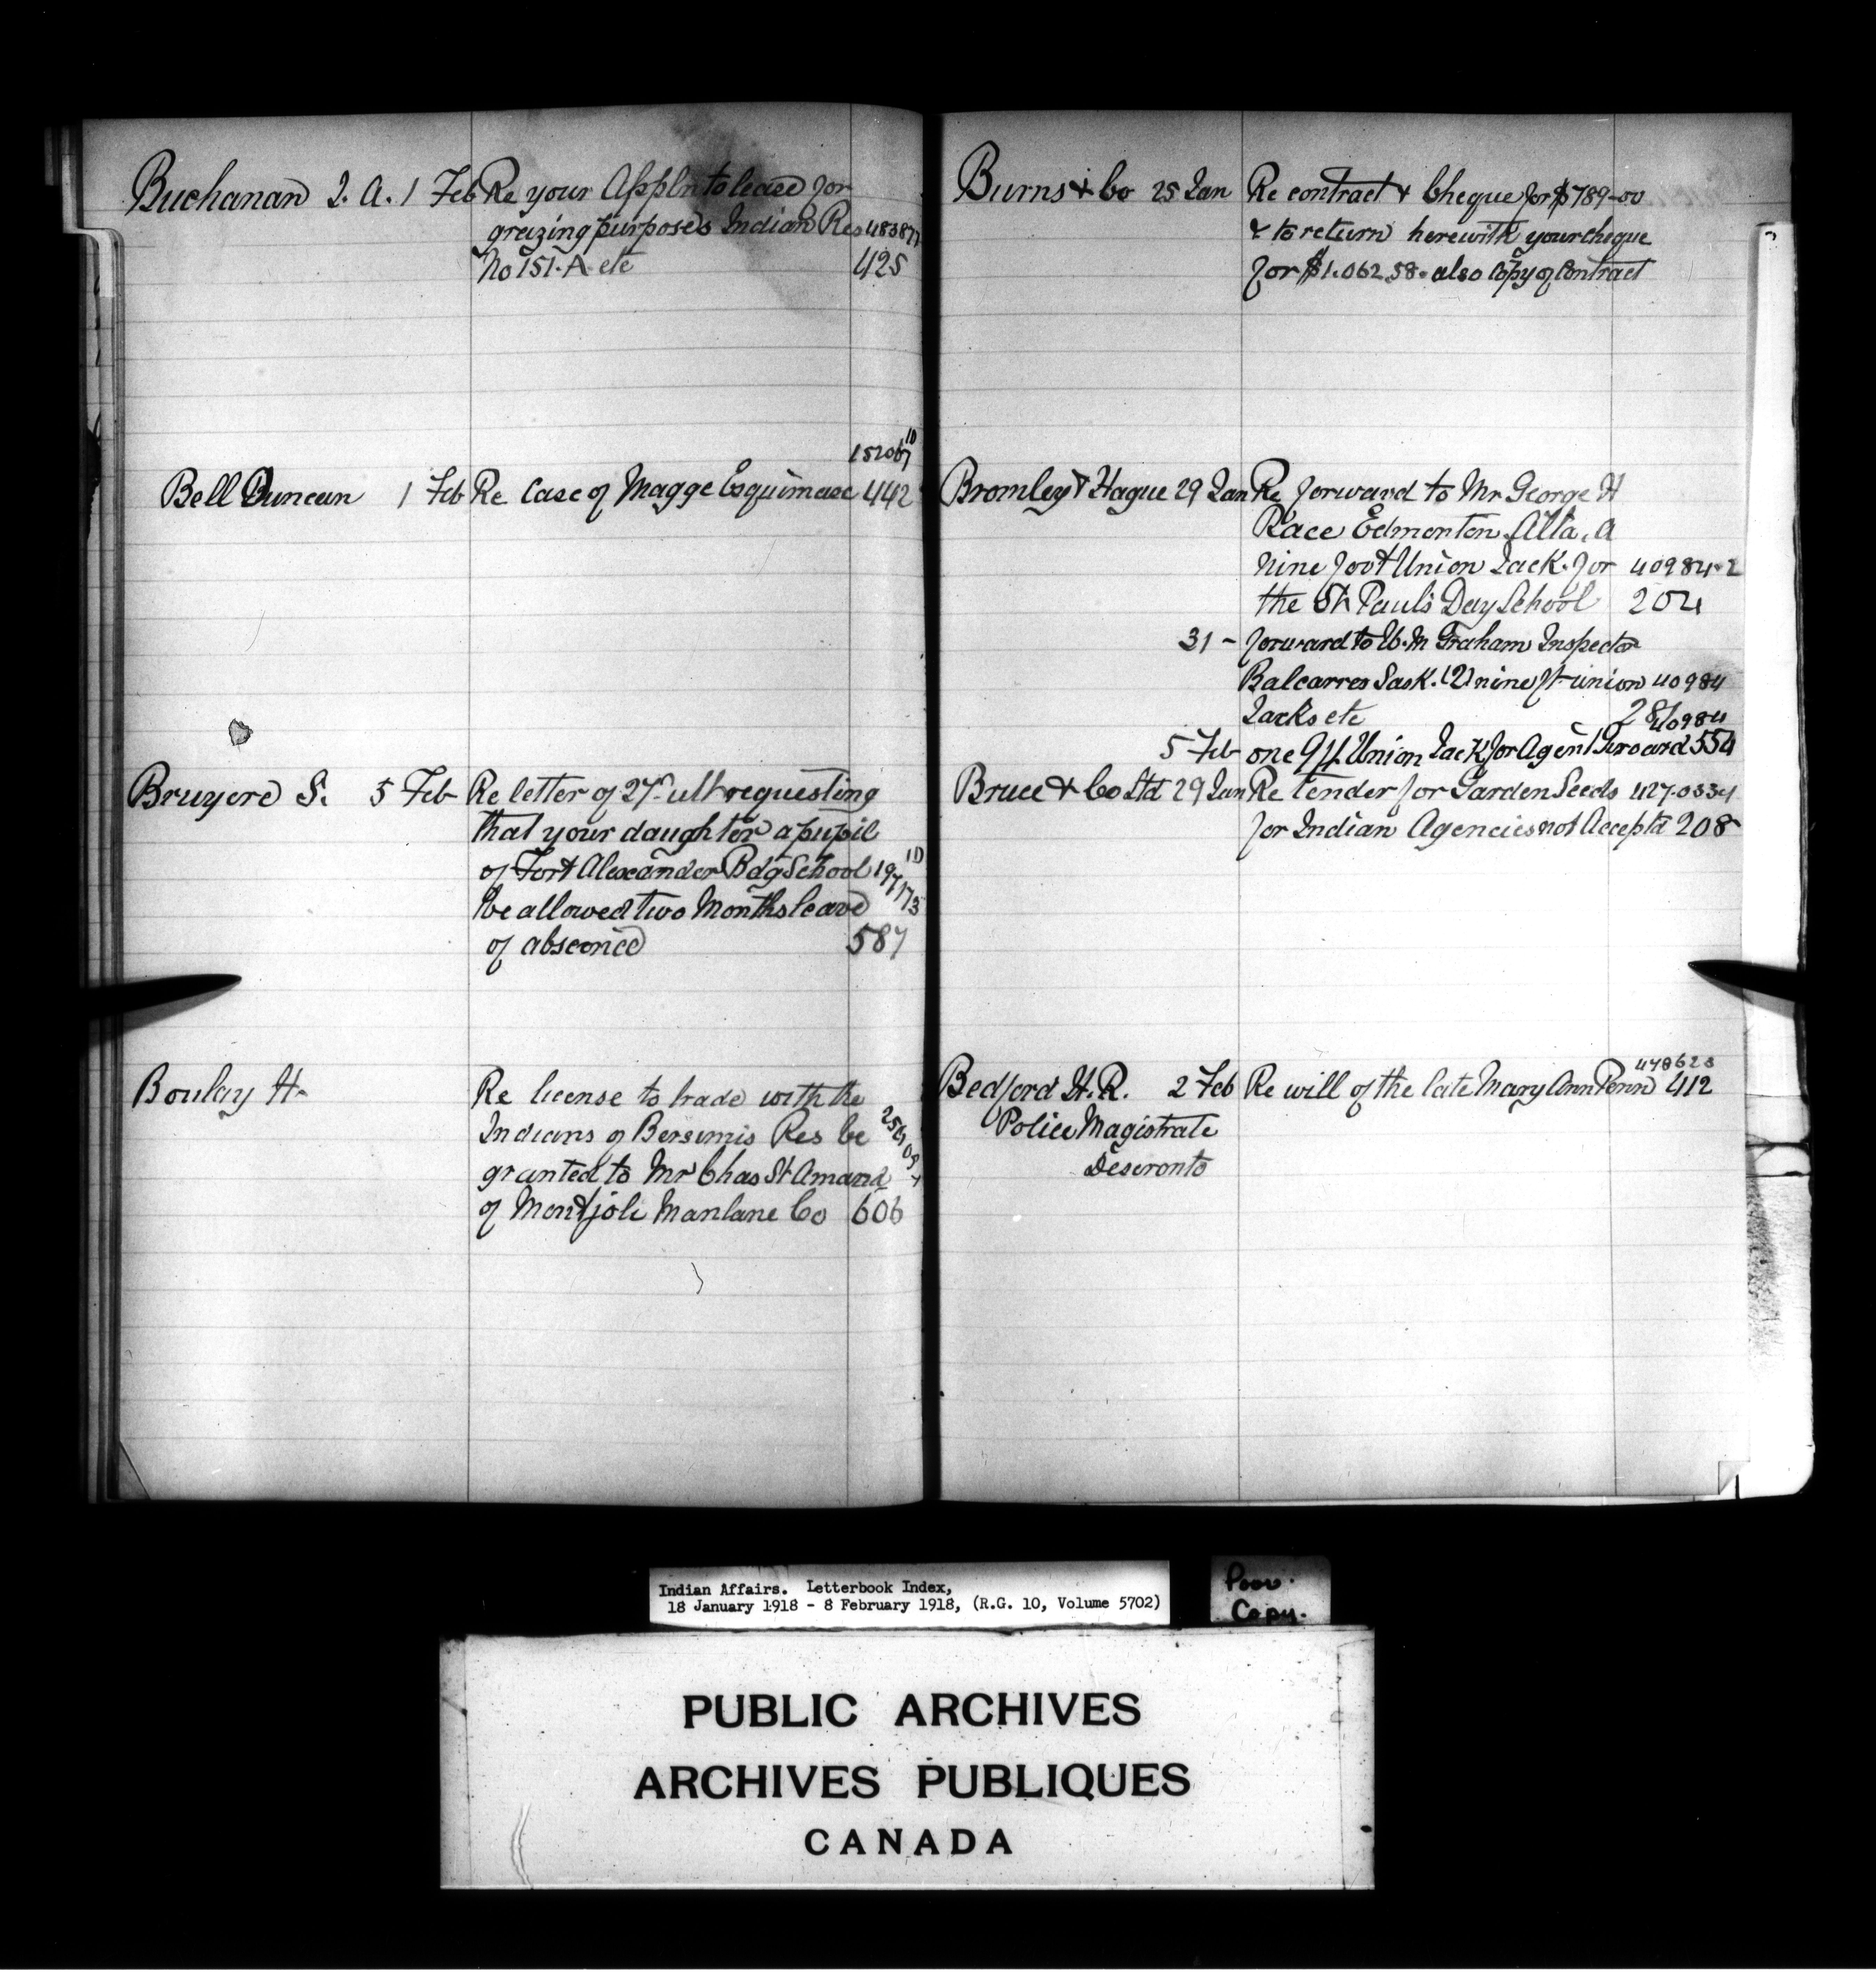 Buchanan J. A. 1 Feb Re your Appln to lease for
grazing purposes Indian Res 483877
No 151-A etc 425
152067 10
Bell Duncan 1 Feb Re Case of Magge Esquimese 442
Bruyere S. 5 Feb Re letter of 27th ult requesting
that your daughter a pupil
of Fort Alexander Bdg School 197173 10
be allowed two Months leave
of absence 587
Boulay H. Re license to trade with the
Indians of Bersimis Res be
granted to Mr Chas St Amand
of Mont joli Manlane Co 606
Burns & Co 25 Jan Re contract & Cheque for $789-00
& to return herewith your cheque
for $1.062.58. also Copy of Contract
Bromley & Hague 29 Jan Re forward to Mr George H
Race Edmonton Alta. a
nine foot Union Jack. for 40984-2
the St Paul's Day School 204
31 - forward to W. M Graham Inspector
Balcarres Sask. (2) nine ft union 40984
Jacks etc 28 40984
5 Feb one 9 ft. Union Jack for Agent 554
Bruce & Co Ltd 29 Jan Re Tender for Garden Seeds 427-0334
for Indian Agencies not Accepta 208
478623
Bedford H. R. 2 Feb Re will of the late Mary Ann Penn 412
Police Magistrate
Deseronto
Indian Affairs. Letterbook Index,
18 January 1918 - 8 February 1918, (R.G. 10, Volume 5702)
Poor.
Copy.
PUBLIC ARCHIVES
ARCHIVES PUBLIQUES
CANADA